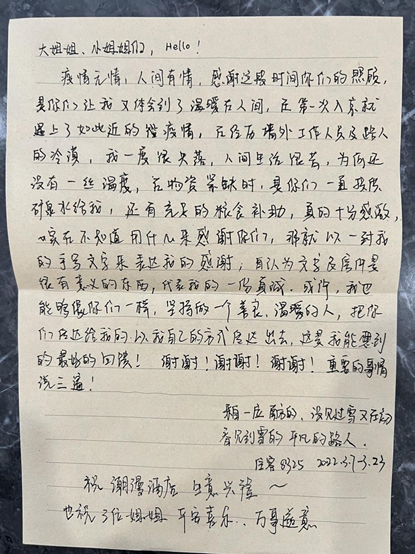 大姐姐、小姐姐们, Hello!
疫情无情,人间有情,感谢这段时间你们的照顾,
是你们让我又体会到了温暖在人间,在第一次入京就
遇上了如此近的 疫情,在经历墙外工作人员及路人
的冷漠,我一度很失落,人间生活很苦,为何还
没有一丝温度,在物资紧缺时,是你们一直提供
矿泉水给我,还有充足的粮食补助,真的十分感激,
实在不知道用什么来感谢你们,那就以一封我
的手写文字来表达我的感谢;自认为文字及信件是
很有意义的东西,代表我的一份真诚。或许,我也
能够像你们一样,坚持做一个善良、温暖的人,把你
们传递给我的以我自己的方式传递出去,这是我能想到
的最好的回馈!谢谢!谢谢!谢谢!重要的事情
说三遍!
一位南方的、没见过雪又在
看见到雪的平凡的路人.
住客8325 2022.3.7-3.23
祝 潮漫酒店 生意兴隆~
也祝3位姐姐平安喜乐..万事遂意